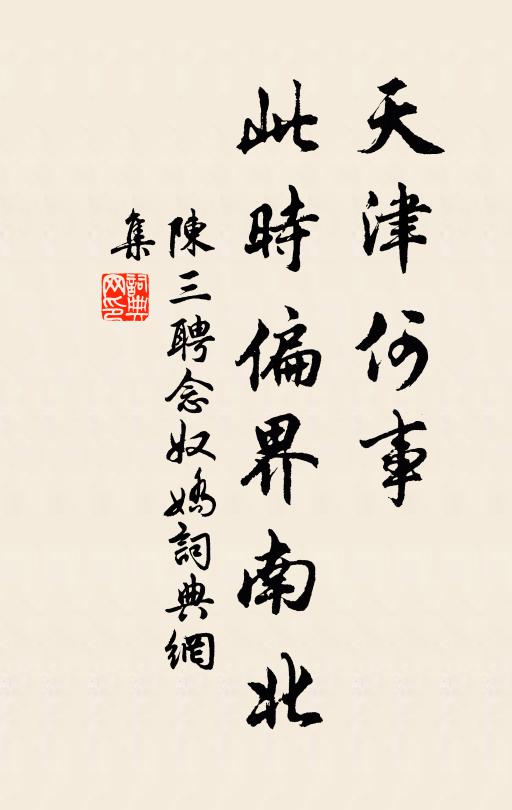 天津何事
此時偏界南北
陳三聘念奴嬌詞典網
集
詞典
网印